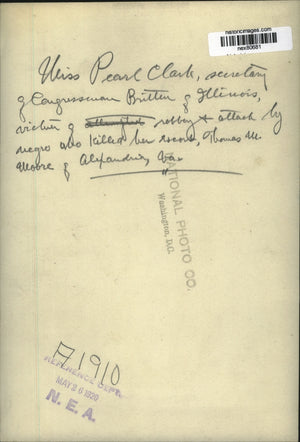 historicimages.com
nex80681
Miss Pearl Clark, secretary
of Congressman Britten of Illinois,
victim of attempted robbery & attack by
negro who killed her escort, Thomas M.
Moore of Alexandria, Va.
NATIONAL PHOTO CO.
Washington, D.C.
A1910
REFERENCE DEPT.
N. E. A.